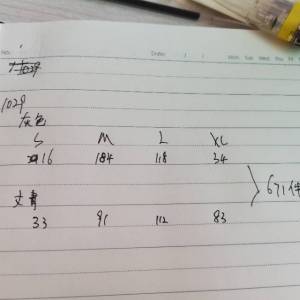 No. Date: / / Mon Tue Wed Thu Fri
1029
灰色
S M L XL
16 184 118 34
丈青
33 91 112 83
671件